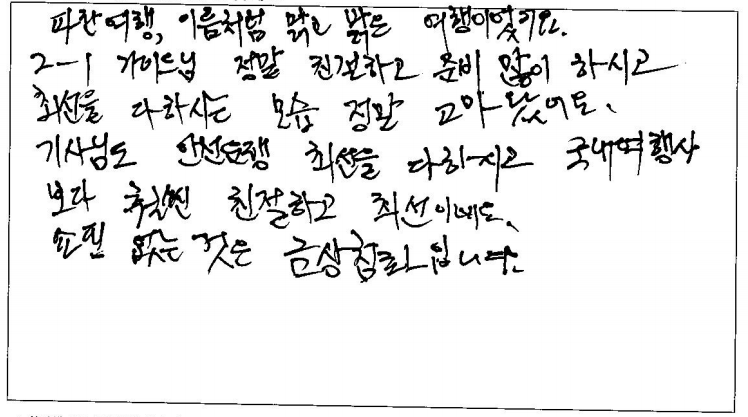 파란여행, 이름처럼 맑고 밝은 여행이었어요.
2-1 가이드님 정말 친절하고 준비 많이 하시고
최선을 다하시는 모습 정말 고마웠어요.
기사님도 안전운행 최선을 다하시고 국내여행사
보다 훨씬 친절하고 최선이네요.
쇼핑 없는 것은 금상첨화입니다.